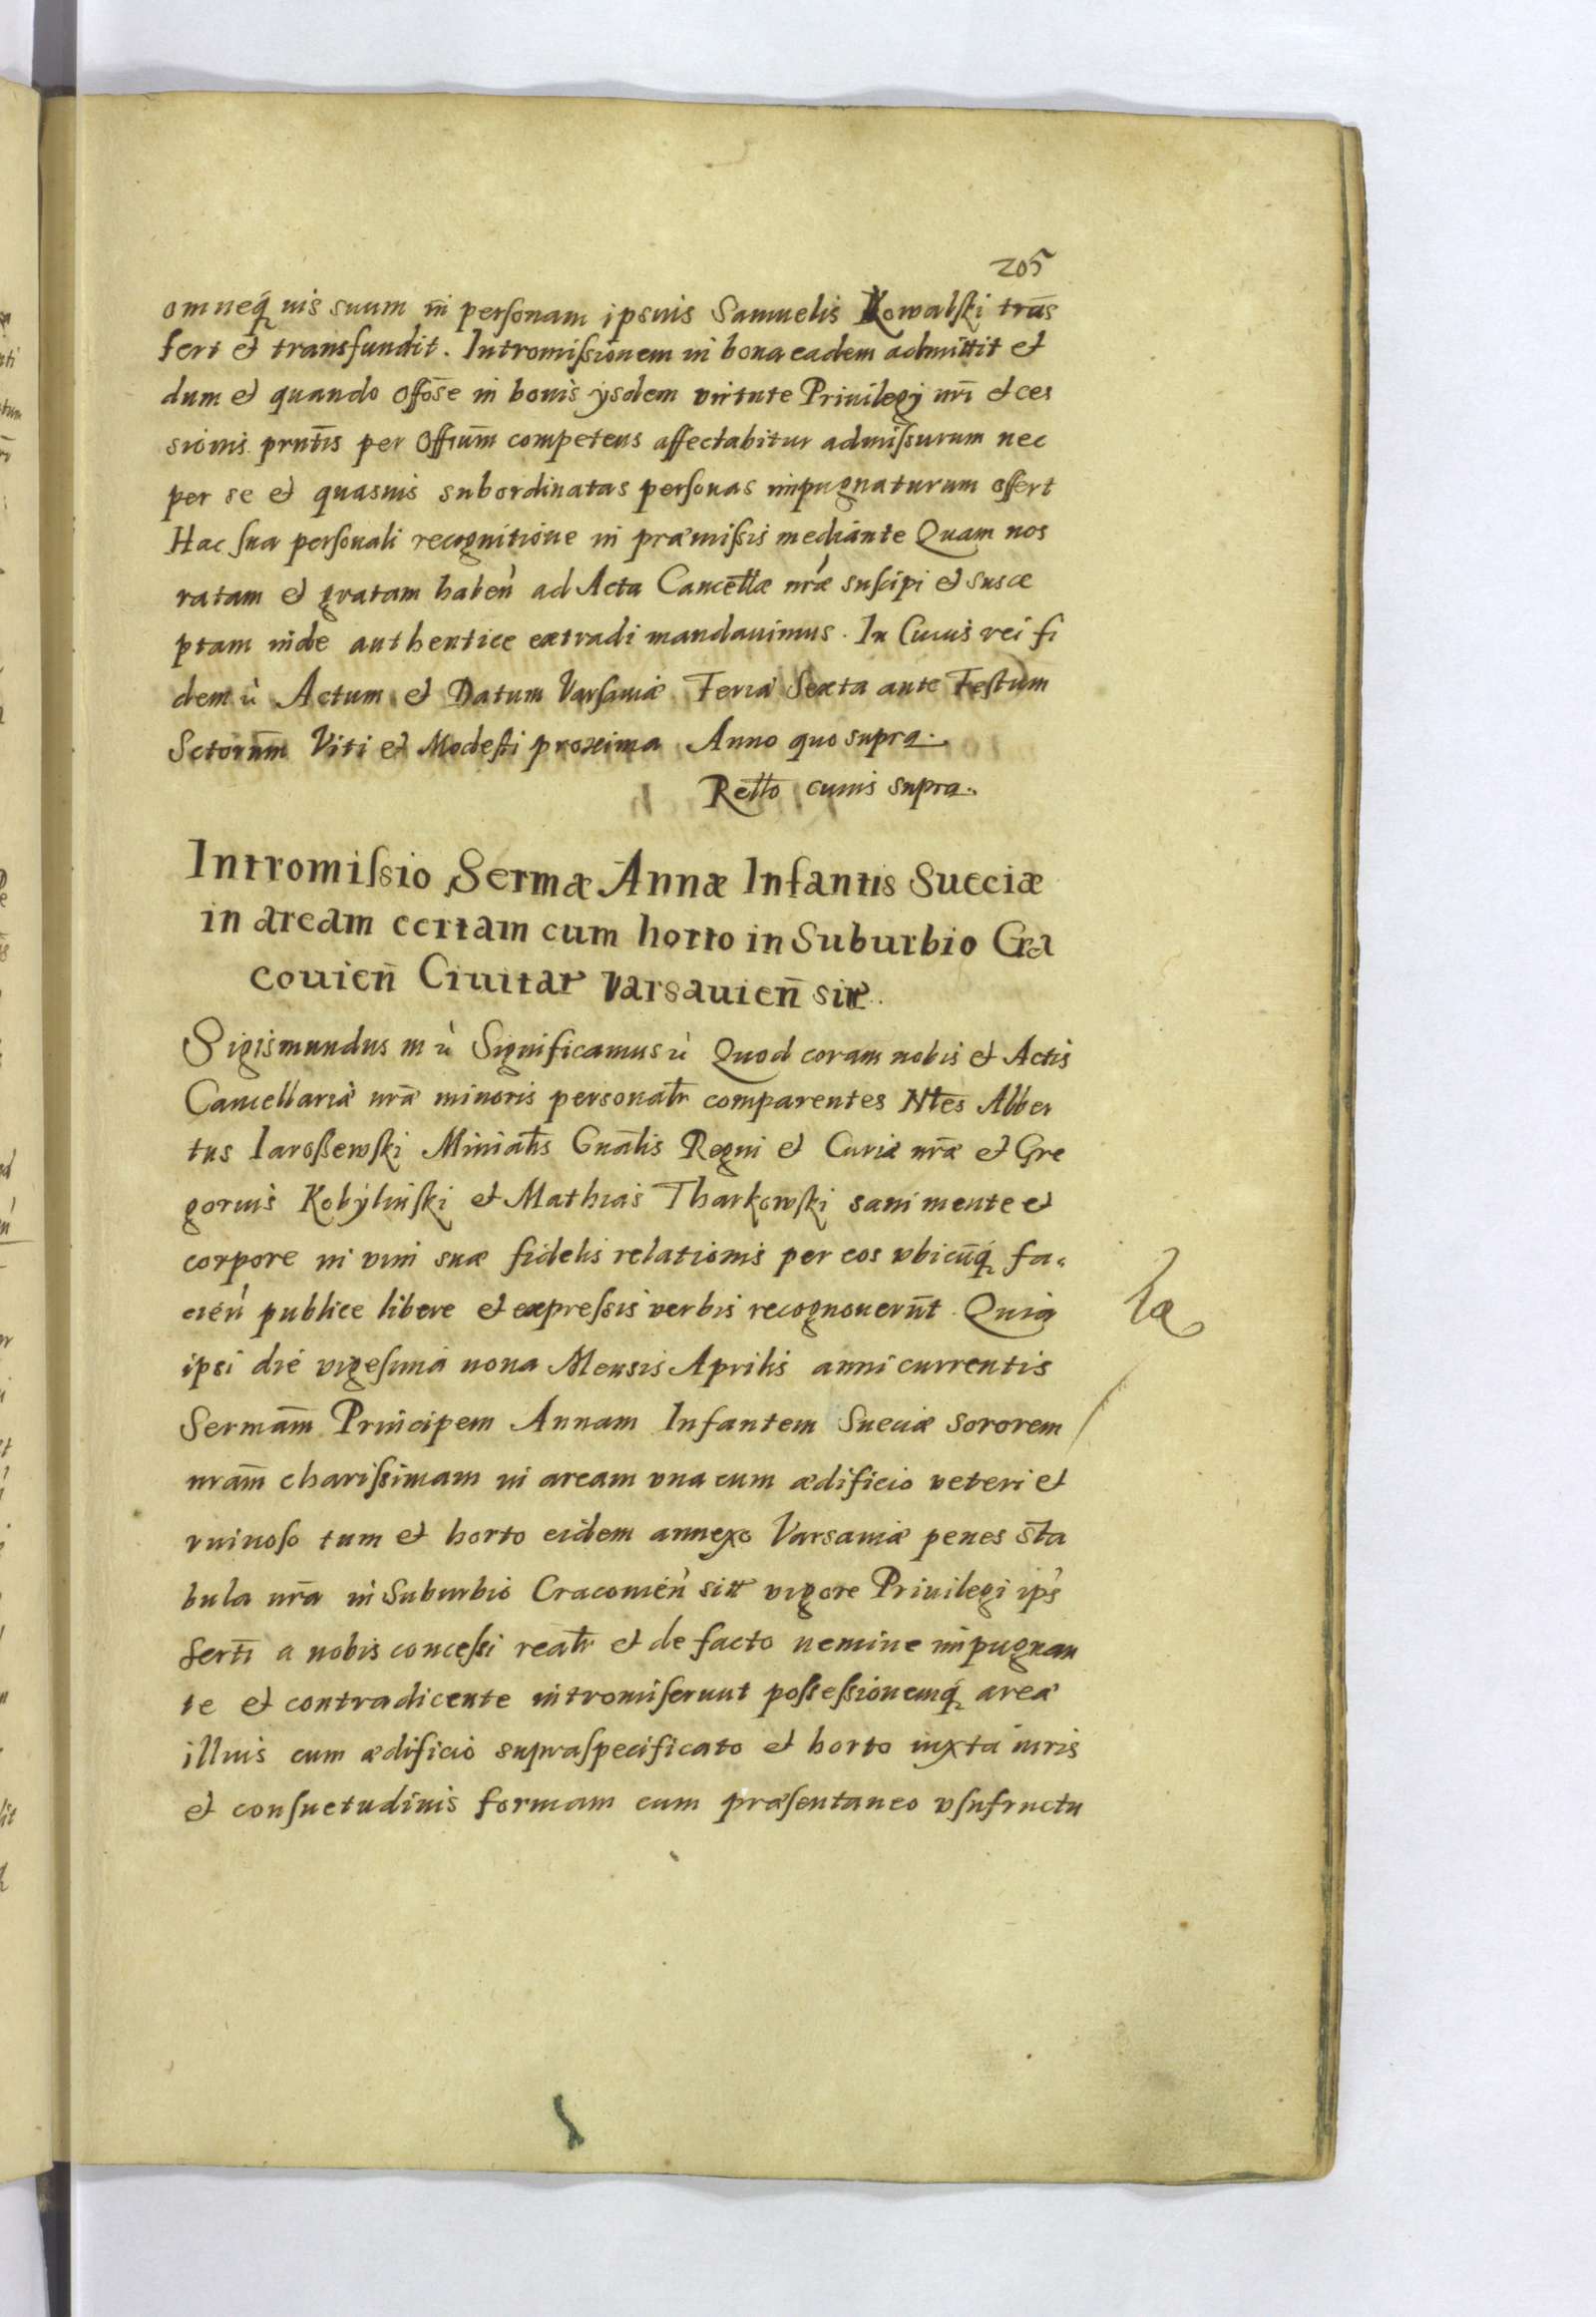 205
omneq́ ius suum in̄ personam ipsius Samuelis Kowalski tran̄s
fert et transfundit. Intromissionem in bona eadem admittit et
dum et quando offōse in bonis ysdem virtute Priuilegy nrī et ces
sionis prnt̄is per Offium̄ competens affectabitur admissurum nec
per se et quasuis subordinatas personas impugnaturum offert
Hac sua personali recognitione in præmissis mediante Quam nos
ratam et gratam haben̄ ad Acta Cancell̄æ nrǽ suscipi et susce
ptam inde authentice extradi mandauimus. In Cuius rei fi
dem ù Actum et Datum Varsauiæ Feria Sexta ante Festum
Sctorum̄ Viti et Modesti proxima Anno quo supra.
Rel̄to cuius supra.
Intromissio Sermæ Annæ Infantis Sueciæ
in aream certam cum horto in Suburbio Cra
couien̄ Ciuitat Varsauien̄ sitæ.
Sigismundus III ù Significamus ù Quod coram nobis et Actis
Cancellariæ nrǣ minoris personalr̄ comparentes Nl̄es Alber
tus Iaroszewski Minialīs Gnālis Regni et Curiæ nrǣ et Gre
gorius Kobyliński et Mathias Tharkowski sani mente et
corpore in vim suæ fidelis relationis per eos vbicun̄q́ fa-
cień publice libere et expressis verbis recognouerun̄t. Quia
ipsi die vigesima nona Mensis Aprilis anni currentis
Sermam̄ Principem Annam Infantem Sueciæ sororem
nram̄ charissimam in aream vna cum ædificio veteri et
ruinoso tum et horto eidem annexo Varsauiæ penes sta
bula nrā in Suburbio Cracouień sitt vigore Priuilegi ips̀
Sertī a nobis concessi realr̄ et de facto nemine impugnan
te et contradicente intromiserunt possessionemq́ areæ
illius cum ædificio supraspecificato et horto iuxta iuris
et consuetudinis formam cum præsentaneo vsufructu